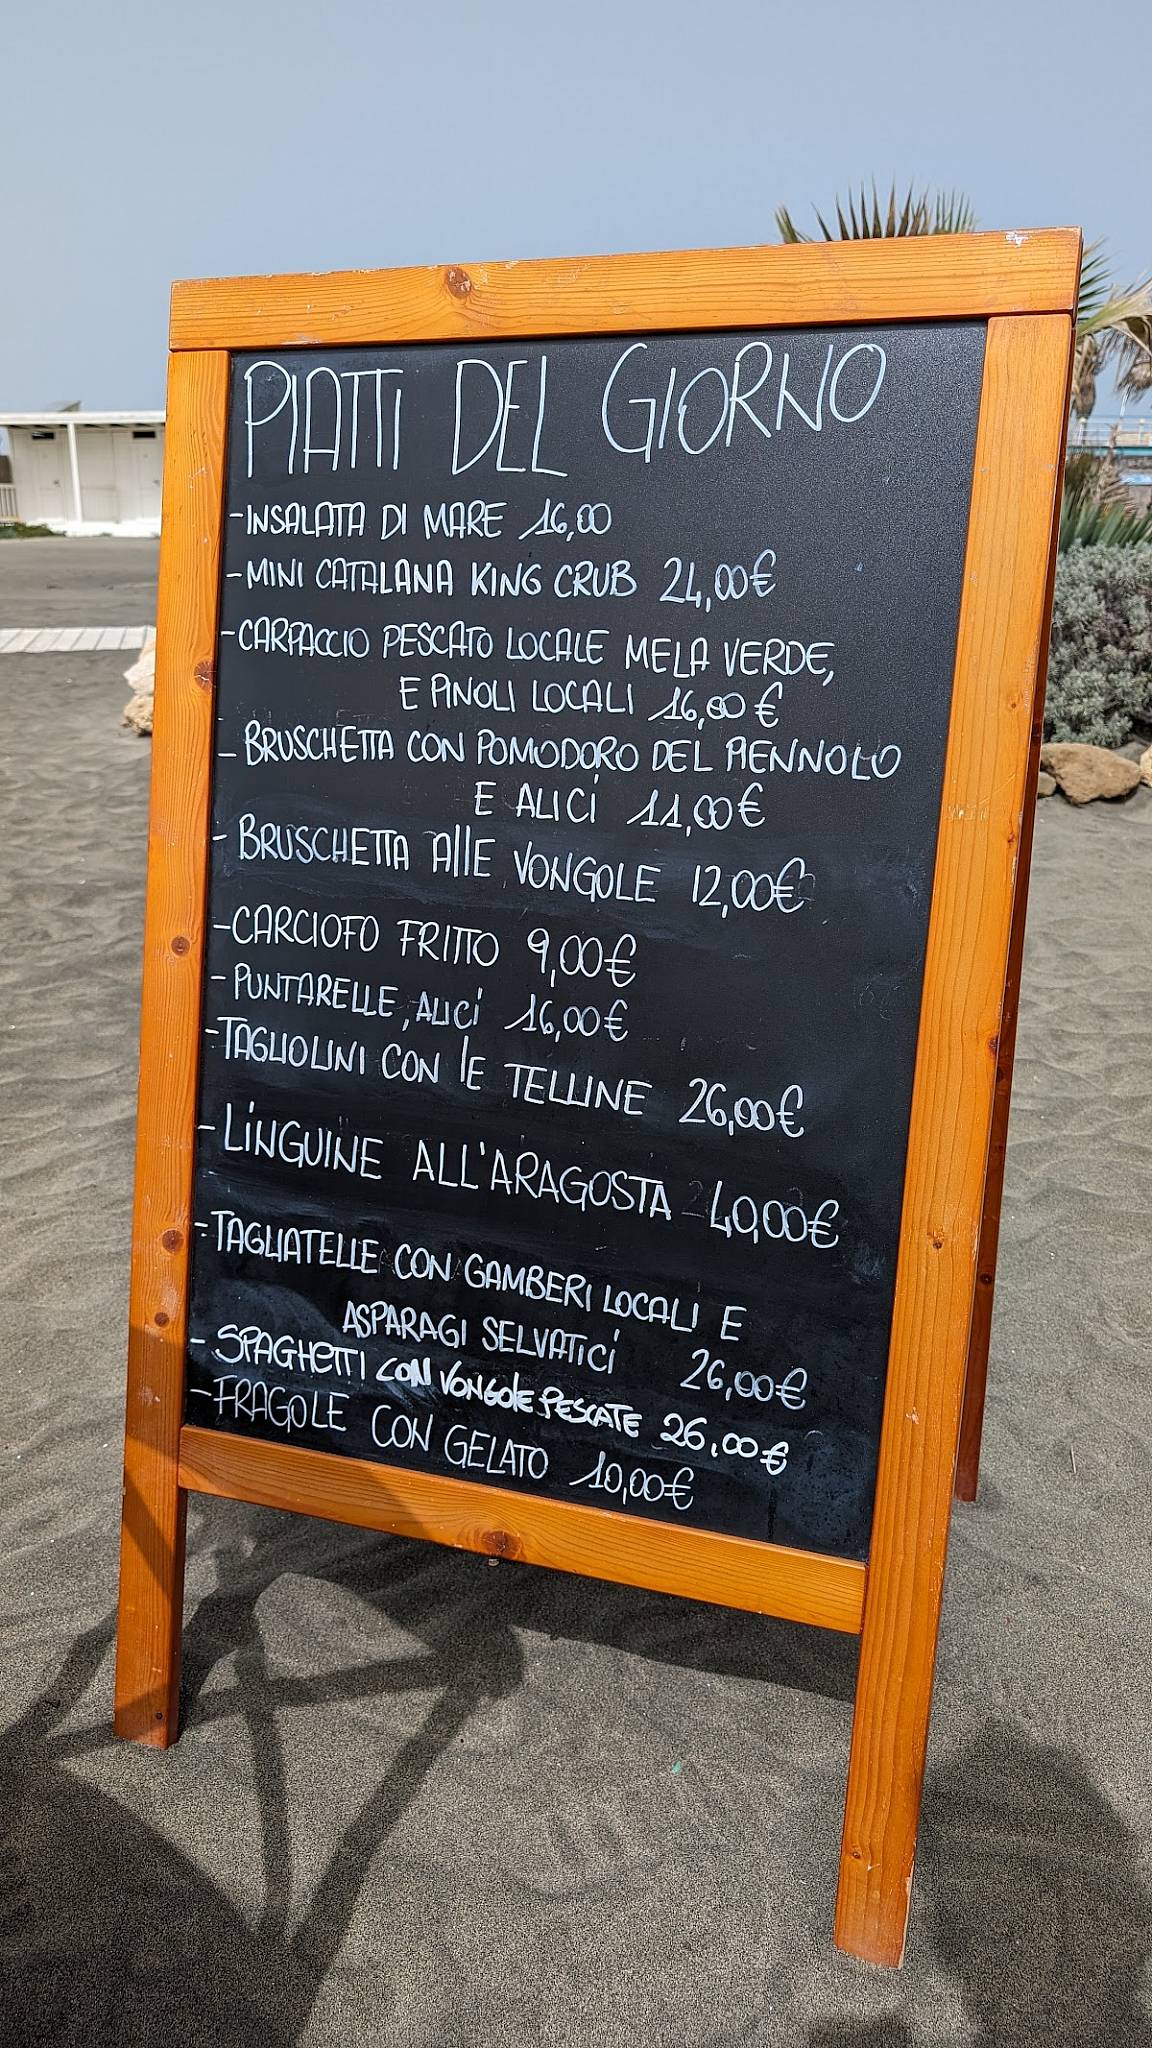 PIATTI DEL GIORNO
-INSALATA DI MARE 16,00
-MINI CATALANA KING CRUB 24,00€
-CARPACCIO PESCATO LOCALE MELA VERDE,
E PINOLI LOCALI 16,00€
- BRUSCHETTA CON POMODORO DEL PIENNOLO
E ALICI 11,00€
- BRUSCHETTA AllE VONGOLE 12,00€
-CARCIOFO FRITTO 9,00€
- PUNTARELLE, ALICI 16,00€
-TAGLIOLINI CON lE TELLINE 26,00€
-LINGUINE ALL'ARAGOSTA 40,00€
-TAGLIATELLE CON GAMBERI LOCALI E
ASPARAGI SELVATICI 26,00€
- SPAGHETTI CON VONGOlE PESCATE 26,00€
-FRAGOLE CON GELATO 10,00€